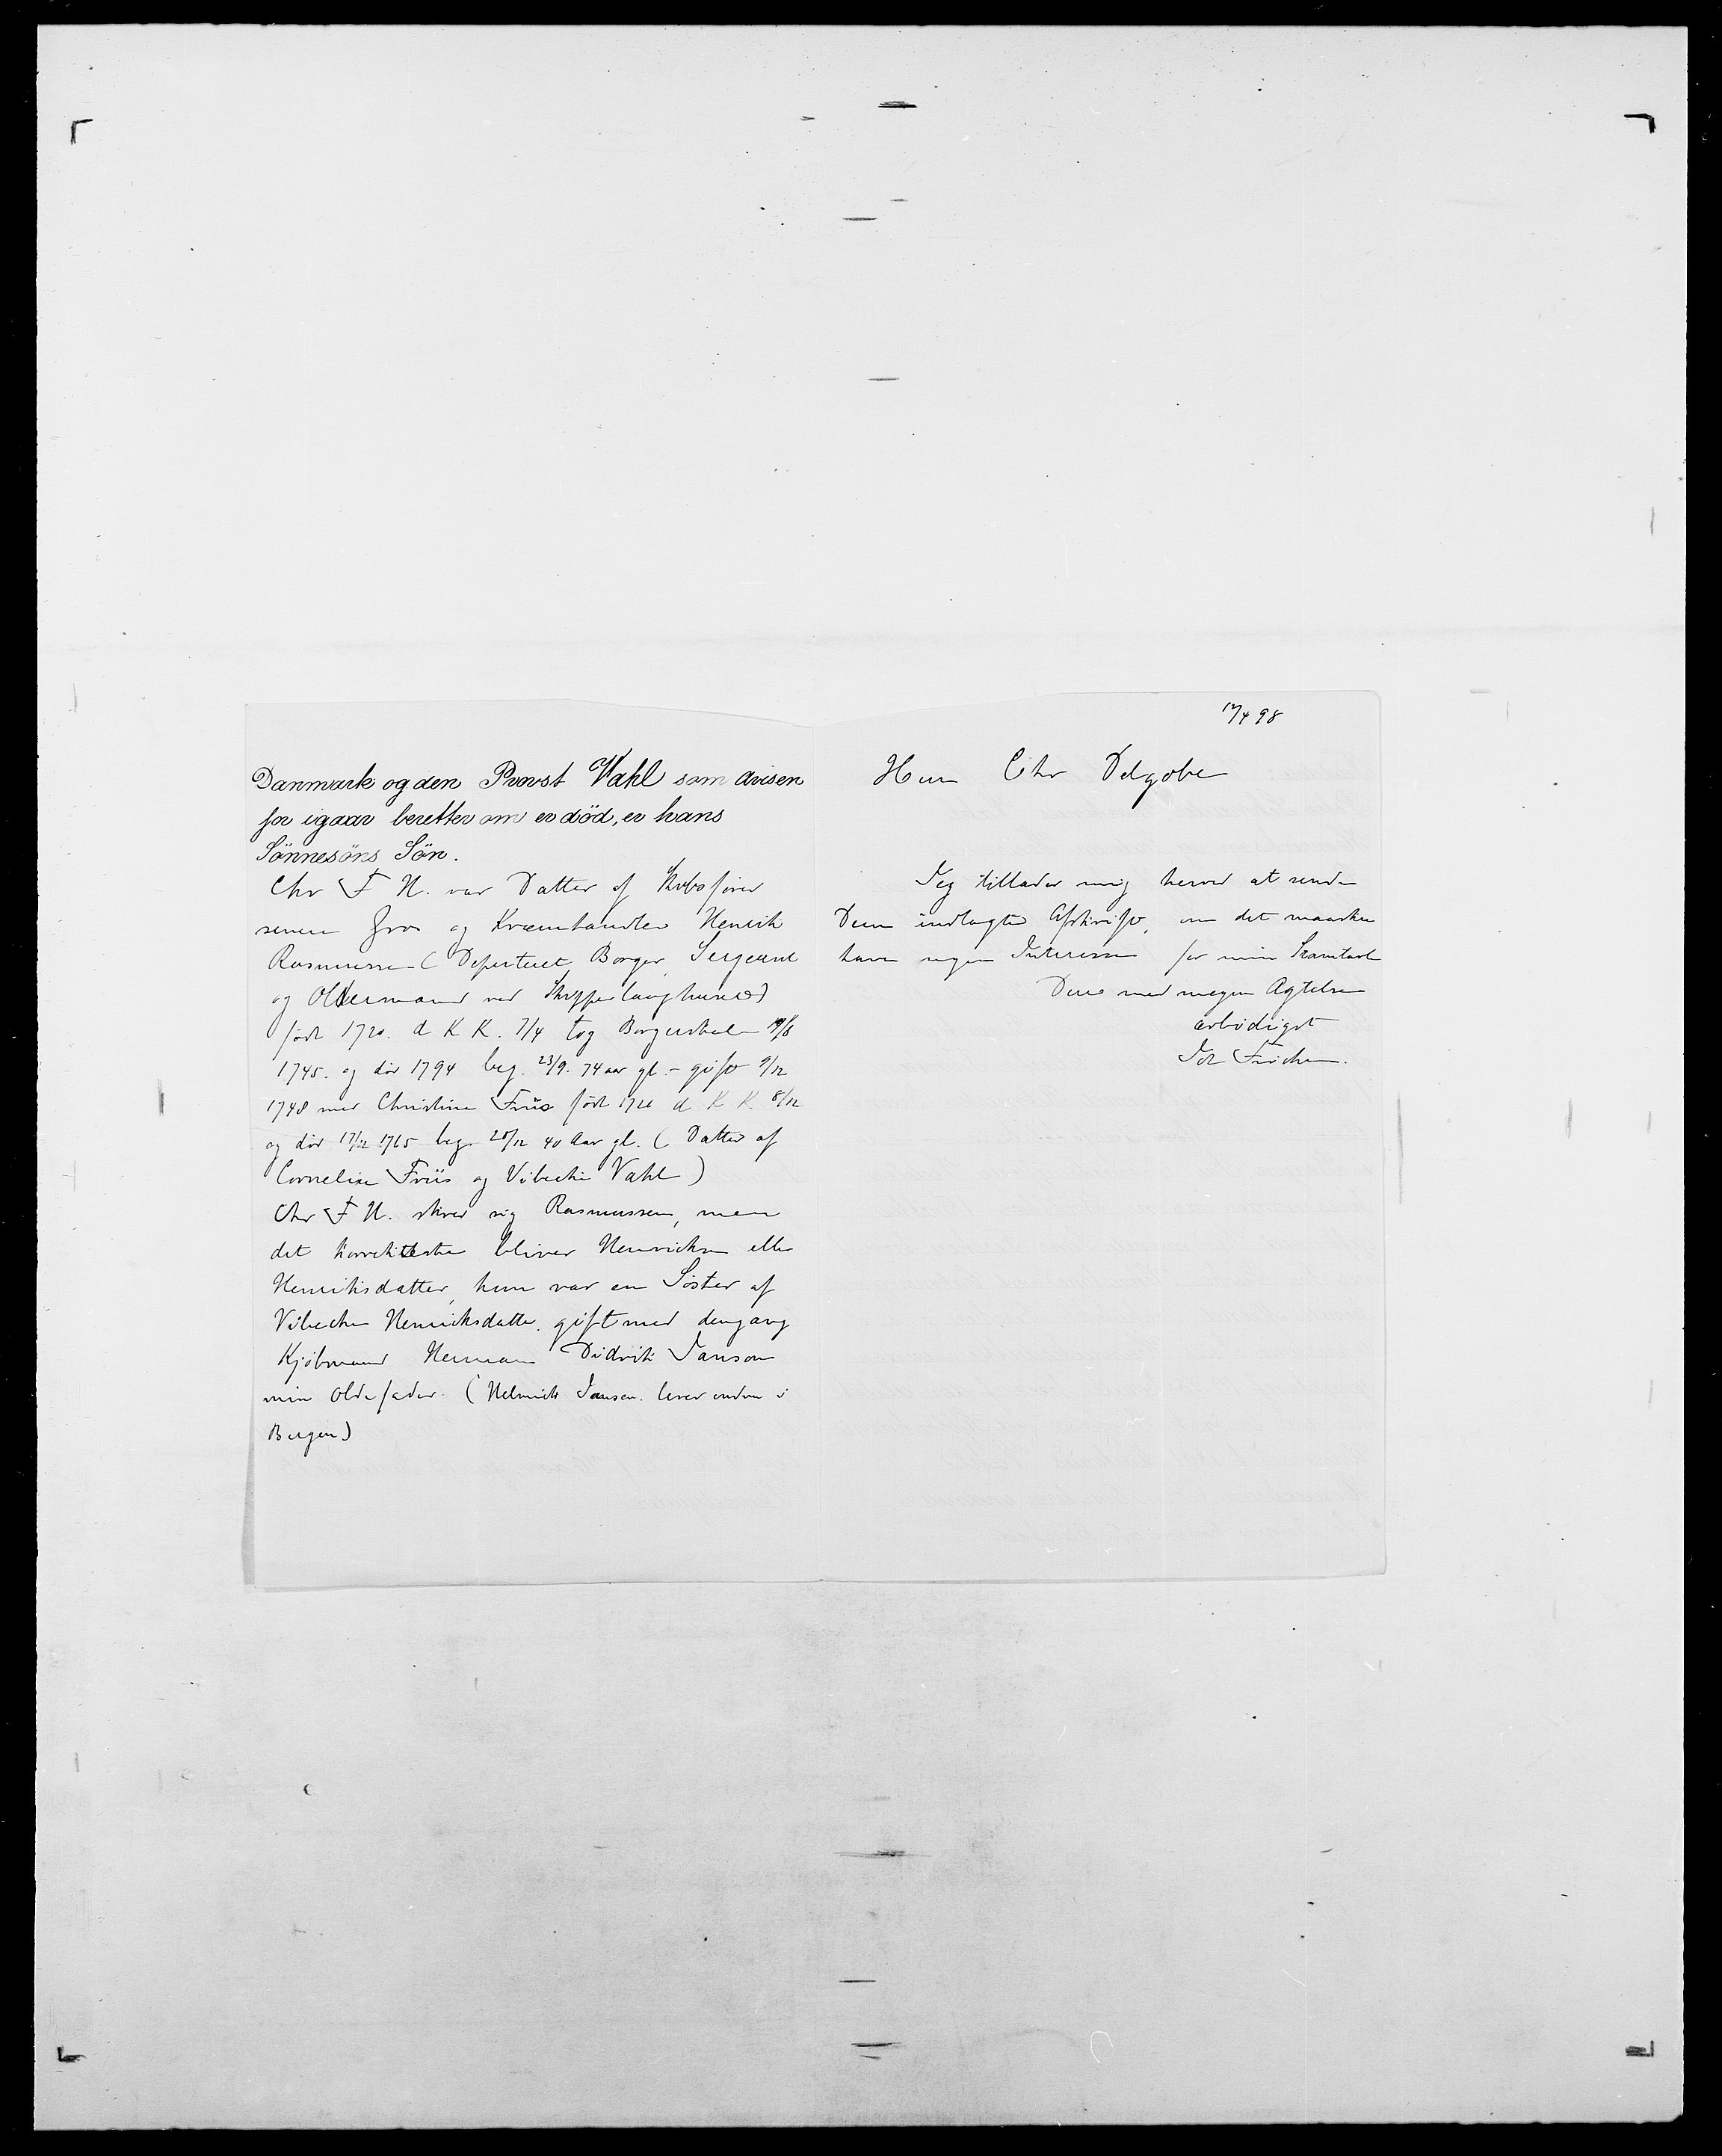 Danmark og den Provst Vahl som avisen
for igaar beretter om er död, er hans
Sönnesöns Sön.
Chr F H. var Datter af Skibsfører
senere Gros og Kræmhandler Henrik
Rasmussen (Deputeret Borger, Sergeant
og Oldermand ved Skipperlaughuset)
født 1720. d K K. 7/4 tog Borgerskab 19/8
1745. og död 1794 beg. 23/9. 74 aar gl. - gift 9/12
1748 med Christine Friis født 1726 d K K. 8/12
og död 17/12 1765 beg 28/12 40 Aar gl. (Datter af
Cornelius Friis og Vibecke Vahl)
Chr F H. skrev sig Rasmussen, men
det korrekteste bliver Henriksen eller
Henriksdatter, hun var en Söster af
Vibecke Henriksdatter. gift med dengang
Kjöbmand Herman Didrik Janson
min Oldefader. (Helmich Janson. lever endnu i
Bergen)
17/4 98
Herr Chr Delgobe
Jeg tillader mig herved at sende
Dem indlagte Afskrift, om det maaske
have nogen Interesse for min Stamtavle
Deres med megen Agtelse
ærbödigst